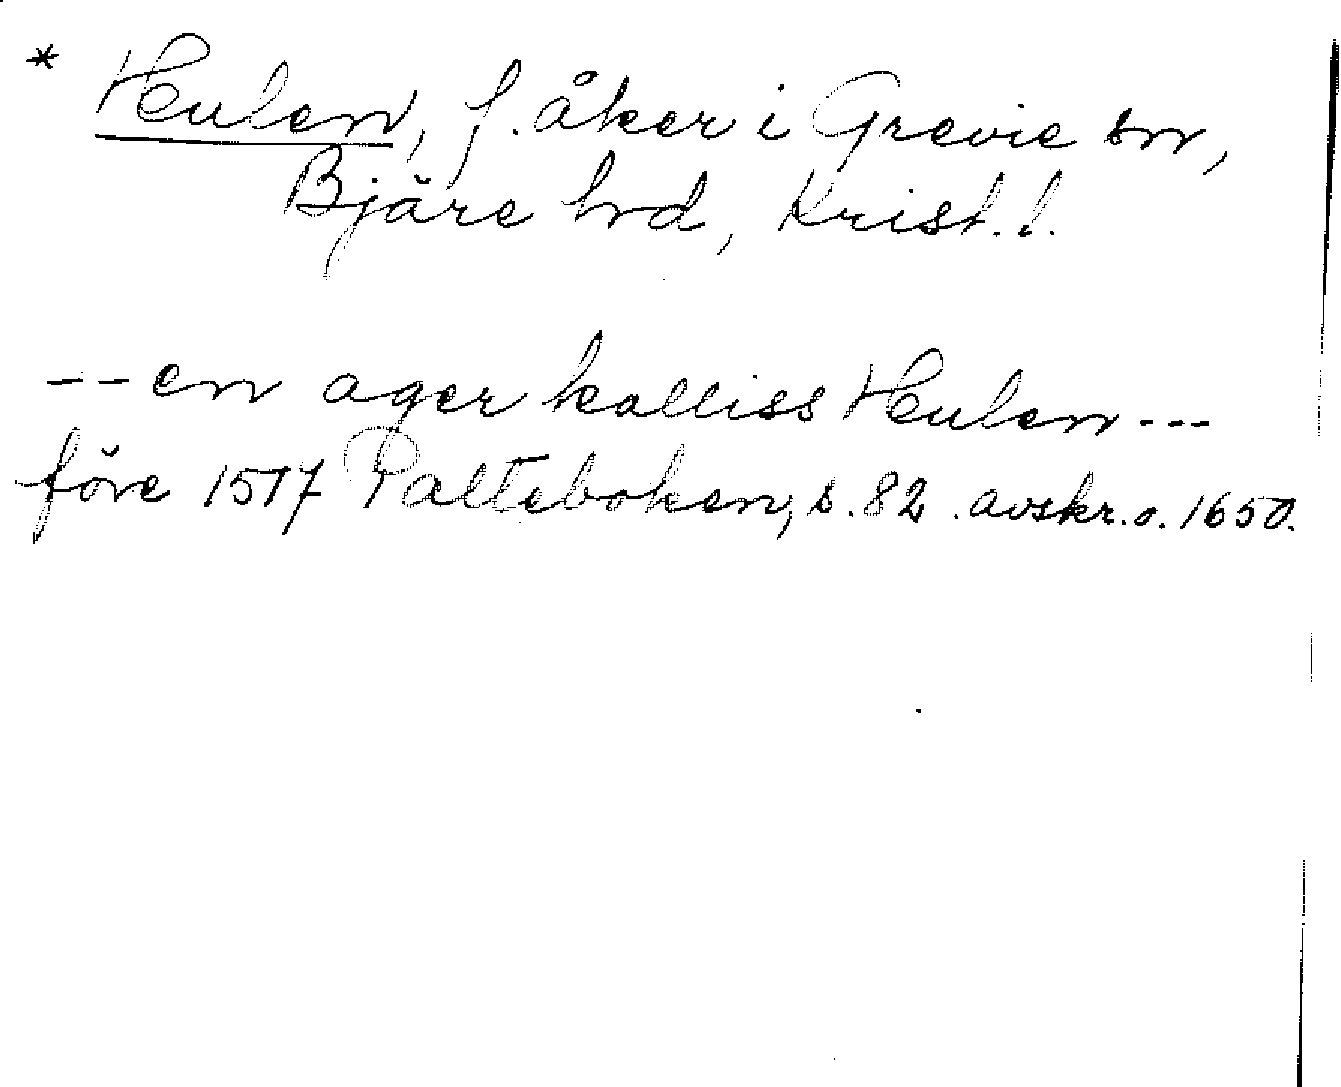 * Heulen, f. åker i Grevie sn,
Bjäre hd, Krist. l.
-- en ager kalliss Heulen ---
före 1517 Palteboken, s. 82. avskr. o. 1650.